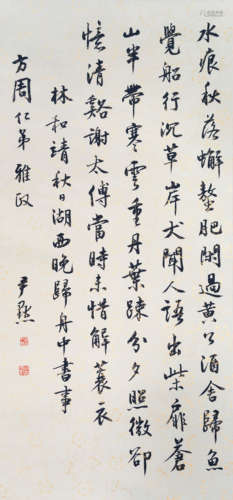 水痕秋落蠏螯肥閒過黃公酒舍歸魚
覺船行沉草岸犬聞人語出柴扉蒼
山半帶寒雲重丹葉疎分夕照微卻
憶清谿謝太傅當時未惜解蓑衣
林和靖秋日湖西晚歸舟中書事
方周仁弟雅政
尹默